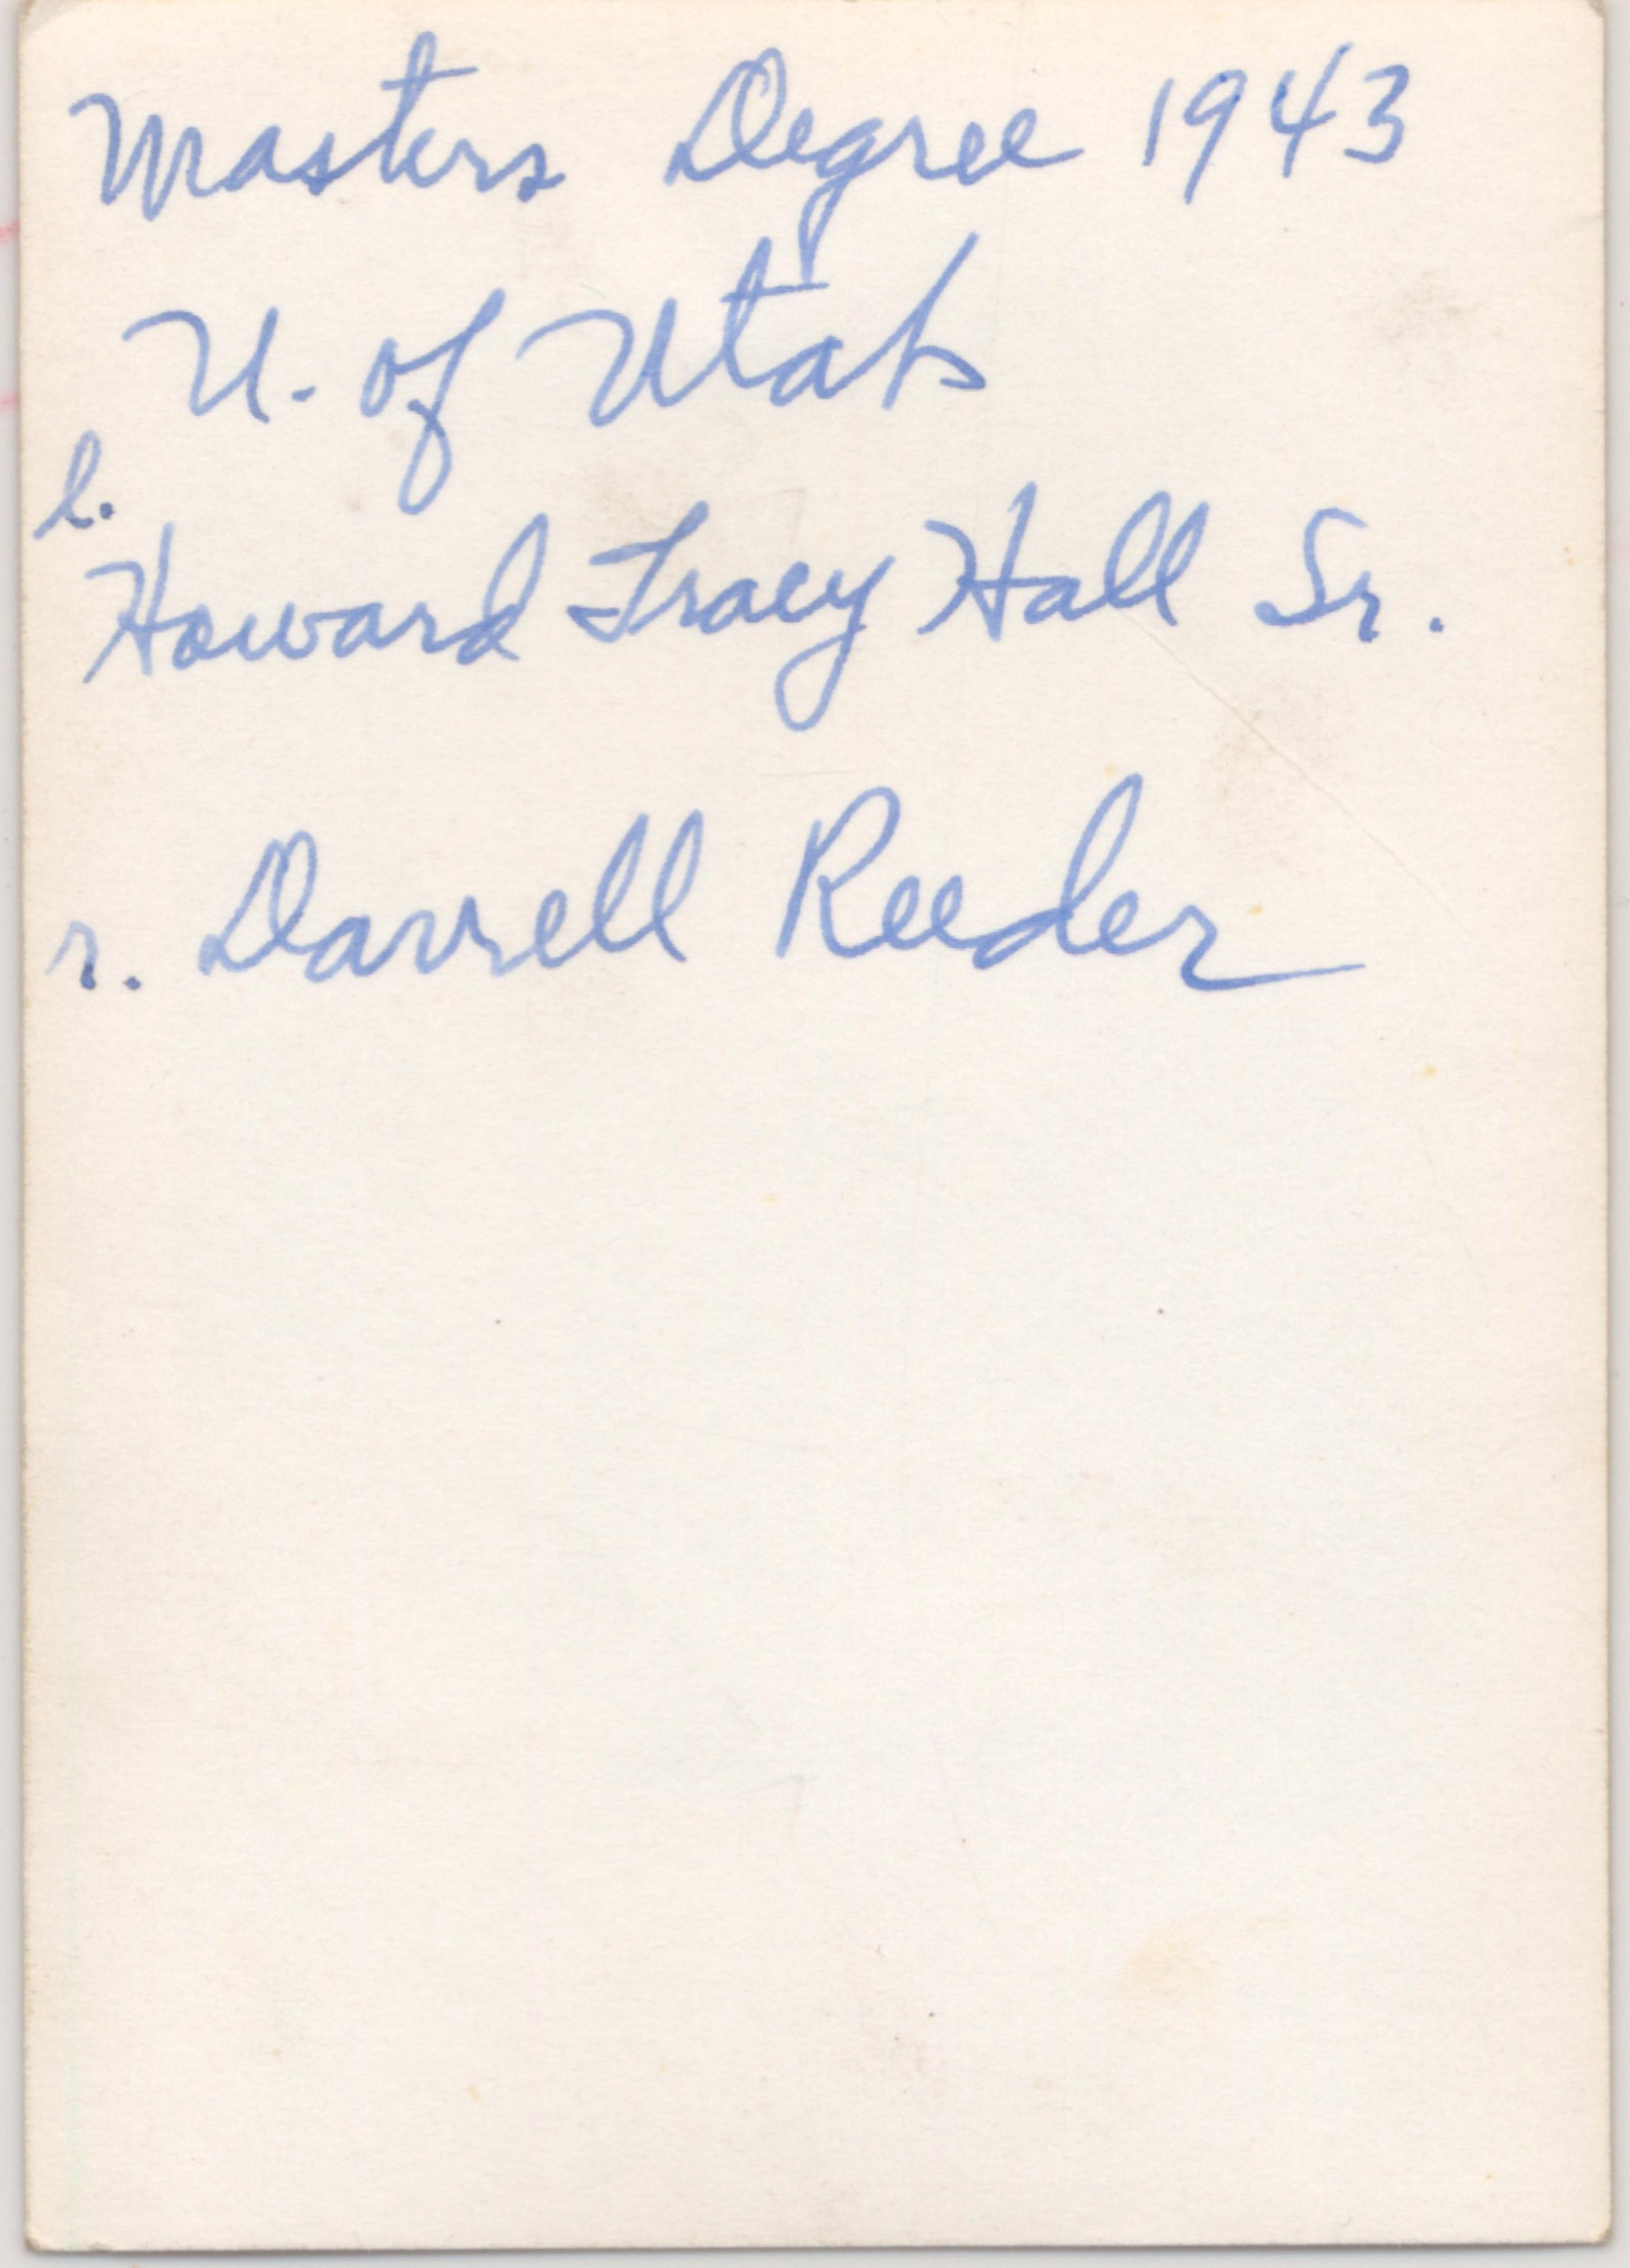 Masters Degree 1943
U. of Utah
l.
Howard Tracy Hall Sr.
r. Darrell Reeder